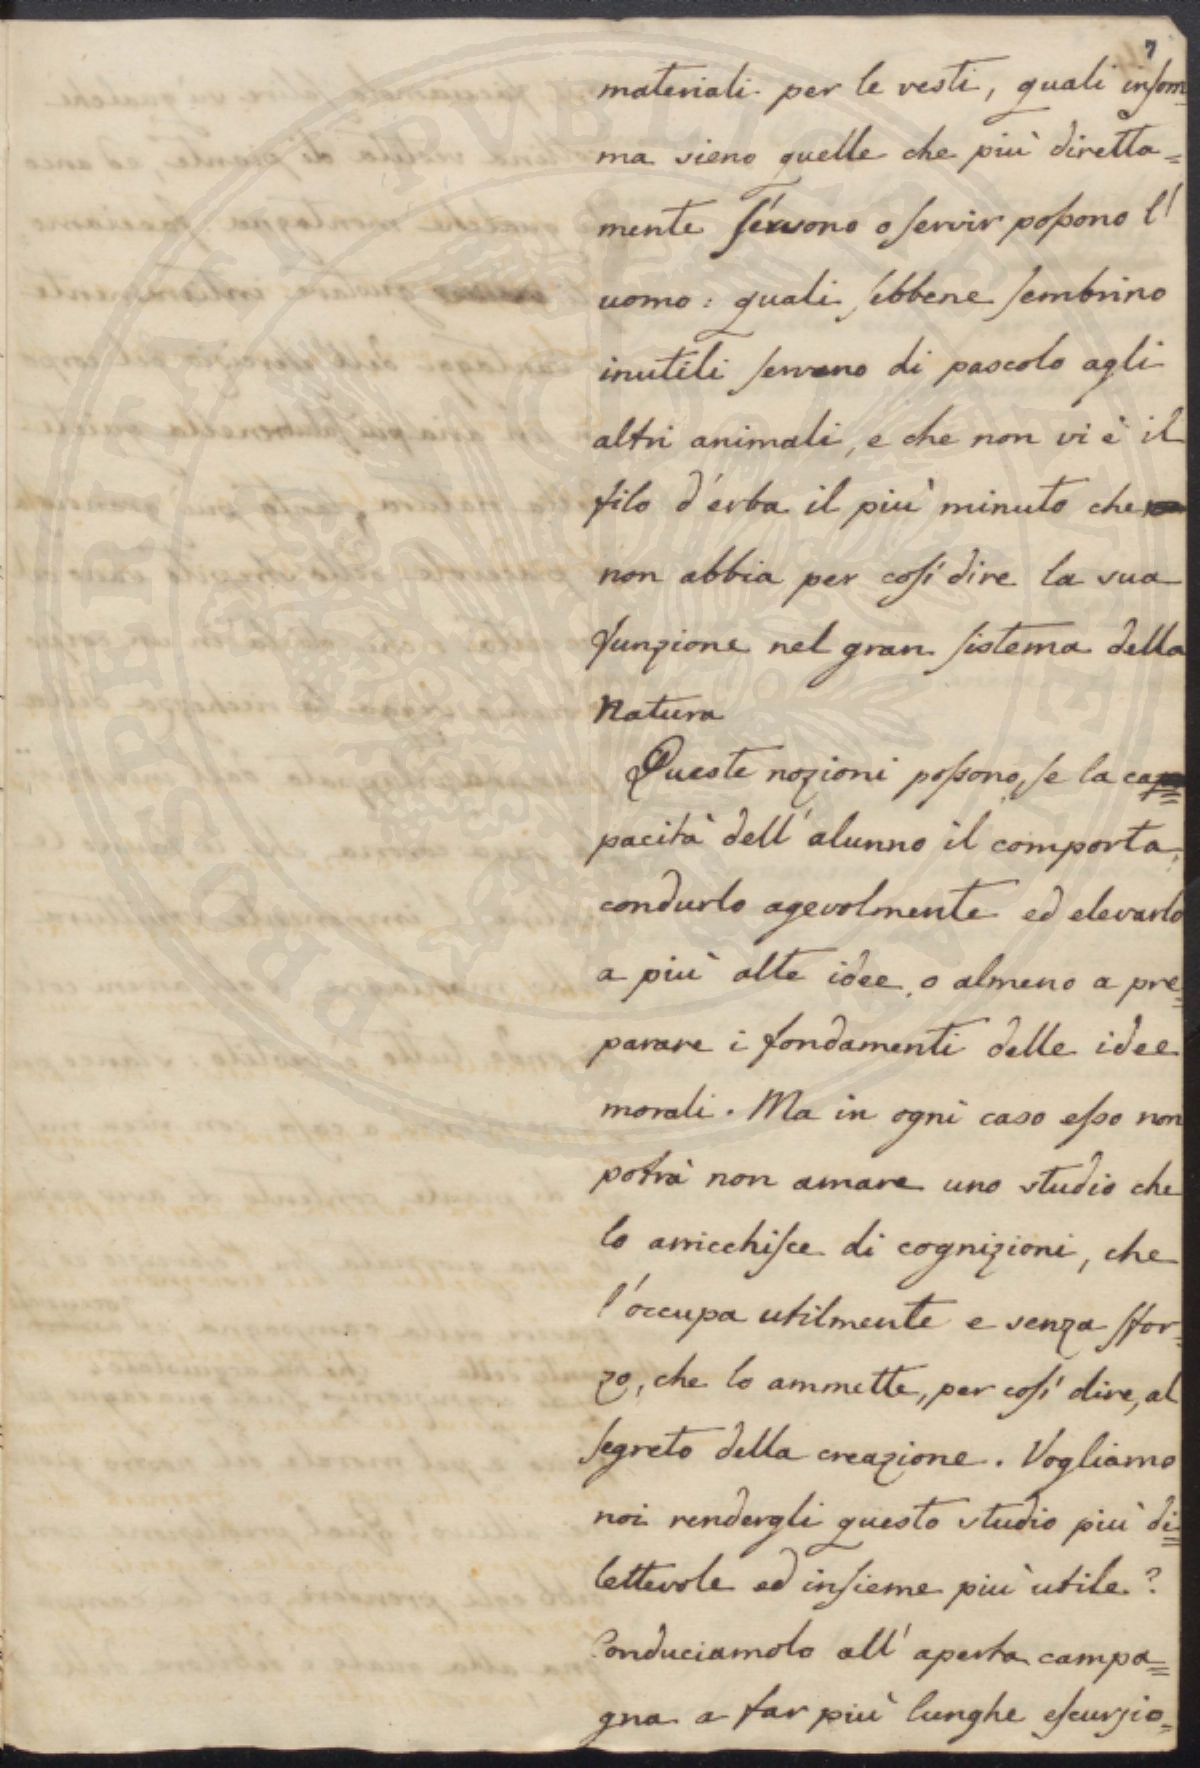 7
materiali per le vesti, quali insom
ma sieno quelle che più diretta=
mente servono o servir possono l'
uomo: quali sebbene sembrino
inutili servano di pascolo agli
altri animali, e che non vi è il
filo d'erba il più minuto che
non abbia per così dire la sua
funzione nel gran sistema della
Natura
Queste nozioni possono, se la ca=
pacità dell'alunno il comporta,
condurlo agevolmente ed elevarlo
a più alte idee, o almeno a pre=
parare i fondamenti delle idee
morali. Ma in ogni caso esso non
potrà non amare uno studio che
lo arricchisce di cognizioni, che
l'occupa utilmente e senza sfor=
zo, che lo ammette, per così dire, al
segreto della creazione. Vogliamo
noi rendergli questo studio più di=
lettevole ed insieme più utile?
Conduciamolo all'aperta campa=
gna a far più lunghe escursio=